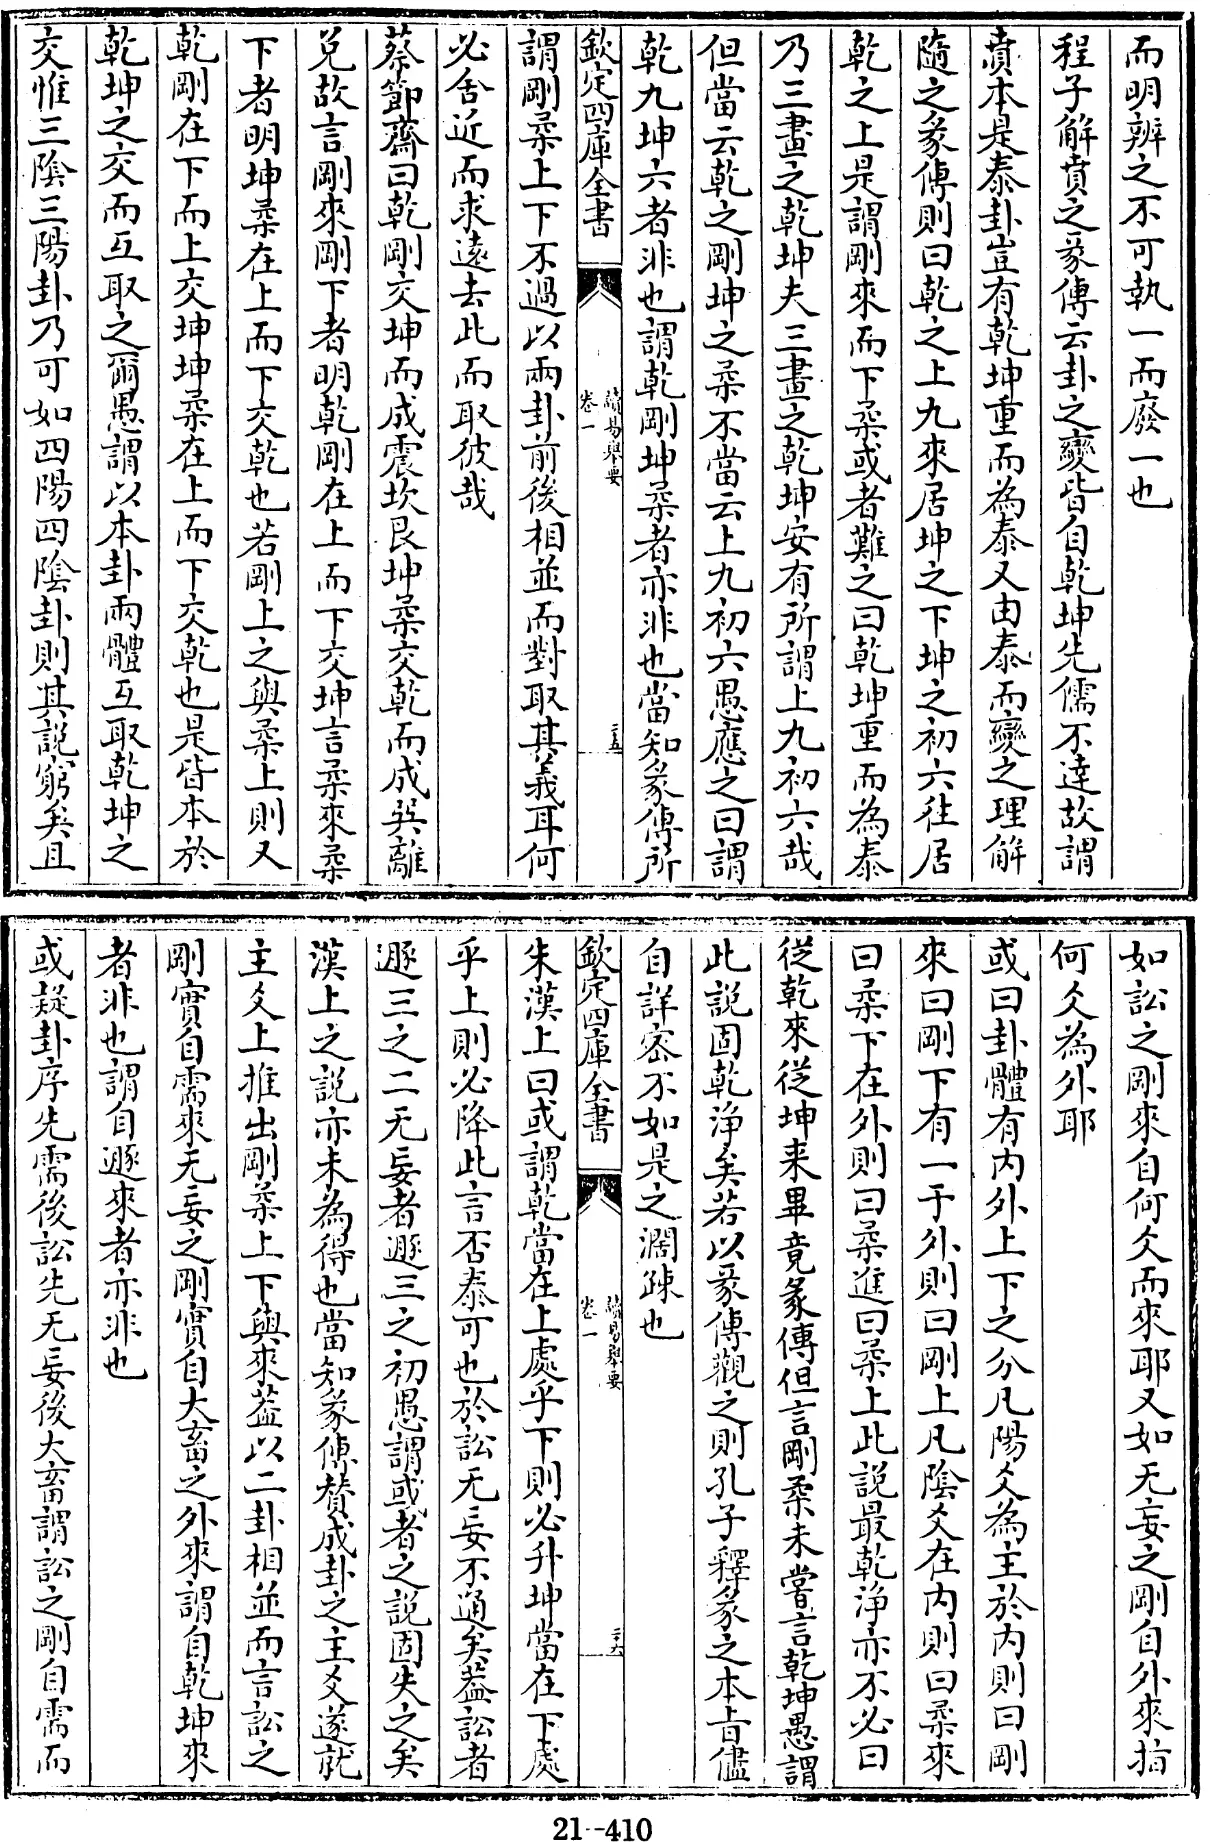 而明辨之不可執一而廢一也
程子解賁之彖傳云卦之變皆自乾坤先儒不達故謂
賁本是泰卦豈有乾坤重而為泰又由泰而變之理解
隨之彖傳則曰乾之上九來居坤之下坤之初六往居
乾之上是謂剛來而下柔或者難之曰乾坤重而為泰
乃三畫之乾坤夫三畫之乾坤安有所謂上九初六哉
但當云乾之剛坤之柔不當云上九初六愚應之曰謂
乾九坤六者非也謂乾剛坤柔者亦非也當知彖傳所
欽定四庫全書
讀易舉要
卷一
二五
謂剛柔上下不過以兩卦前後相並而對取其義耳何
必舍近而求遠去此而取彼哉
蔡節齋曰乾剛交坤而成震坎艮坤柔交乾而成巽離
兌故言剛來剛下者明乾剛在上而下交坤言柔來柔
下者明坤柔在上而下交乾也若剛上之與柔上則又
乾剛在下而上交坤坤柔在上而下交乾也是皆本於
乾坤之交而互取之爾愚謂以本卦兩體互取乾坤之
交惟三陰三陽卦乃可如四陽四陰卦則其說窮矣且
如訟之剛來自何爻而來耶又如无妄之剛自外來指
何爻為外耶
或曰卦體有内外上下之分凡陽爻為主於内則曰剛
來曰剛下有一于外則曰剛上凡陰爻在内則曰柔來
曰柔下在外則曰柔進曰柔上此說最乾淨亦不必曰
從乾來從坤来畢竟彖傳但言剛柔未嘗言乾坤愚謂
此說固乾淨矣若以彖傳觀之則孔子釋彖之本旨儘
自詳宻不如是之濶疎也
欽定四庫全書
讀易舉要
卷一
二六
朱漢上曰或謂乾當在上處乎下則必升坤當在下處
乎上則必降此言否泰可也於訟无妄不通矣葢訟者
遯三之二无妄者遯三之初愚謂或者之說固失之矣
漢上之說亦未為得也當知彖傳贊成卦之主爻遂就
主爻上推出剛柔上下與來葢以二卦相並而言訟之
剛實自需來无妄之剛實自大畜之外來謂自乾坤來
者非也謂自遯來者亦非也
或疑卦序先需後訟先无妄後大畜謂訟之剛自需而
21-410